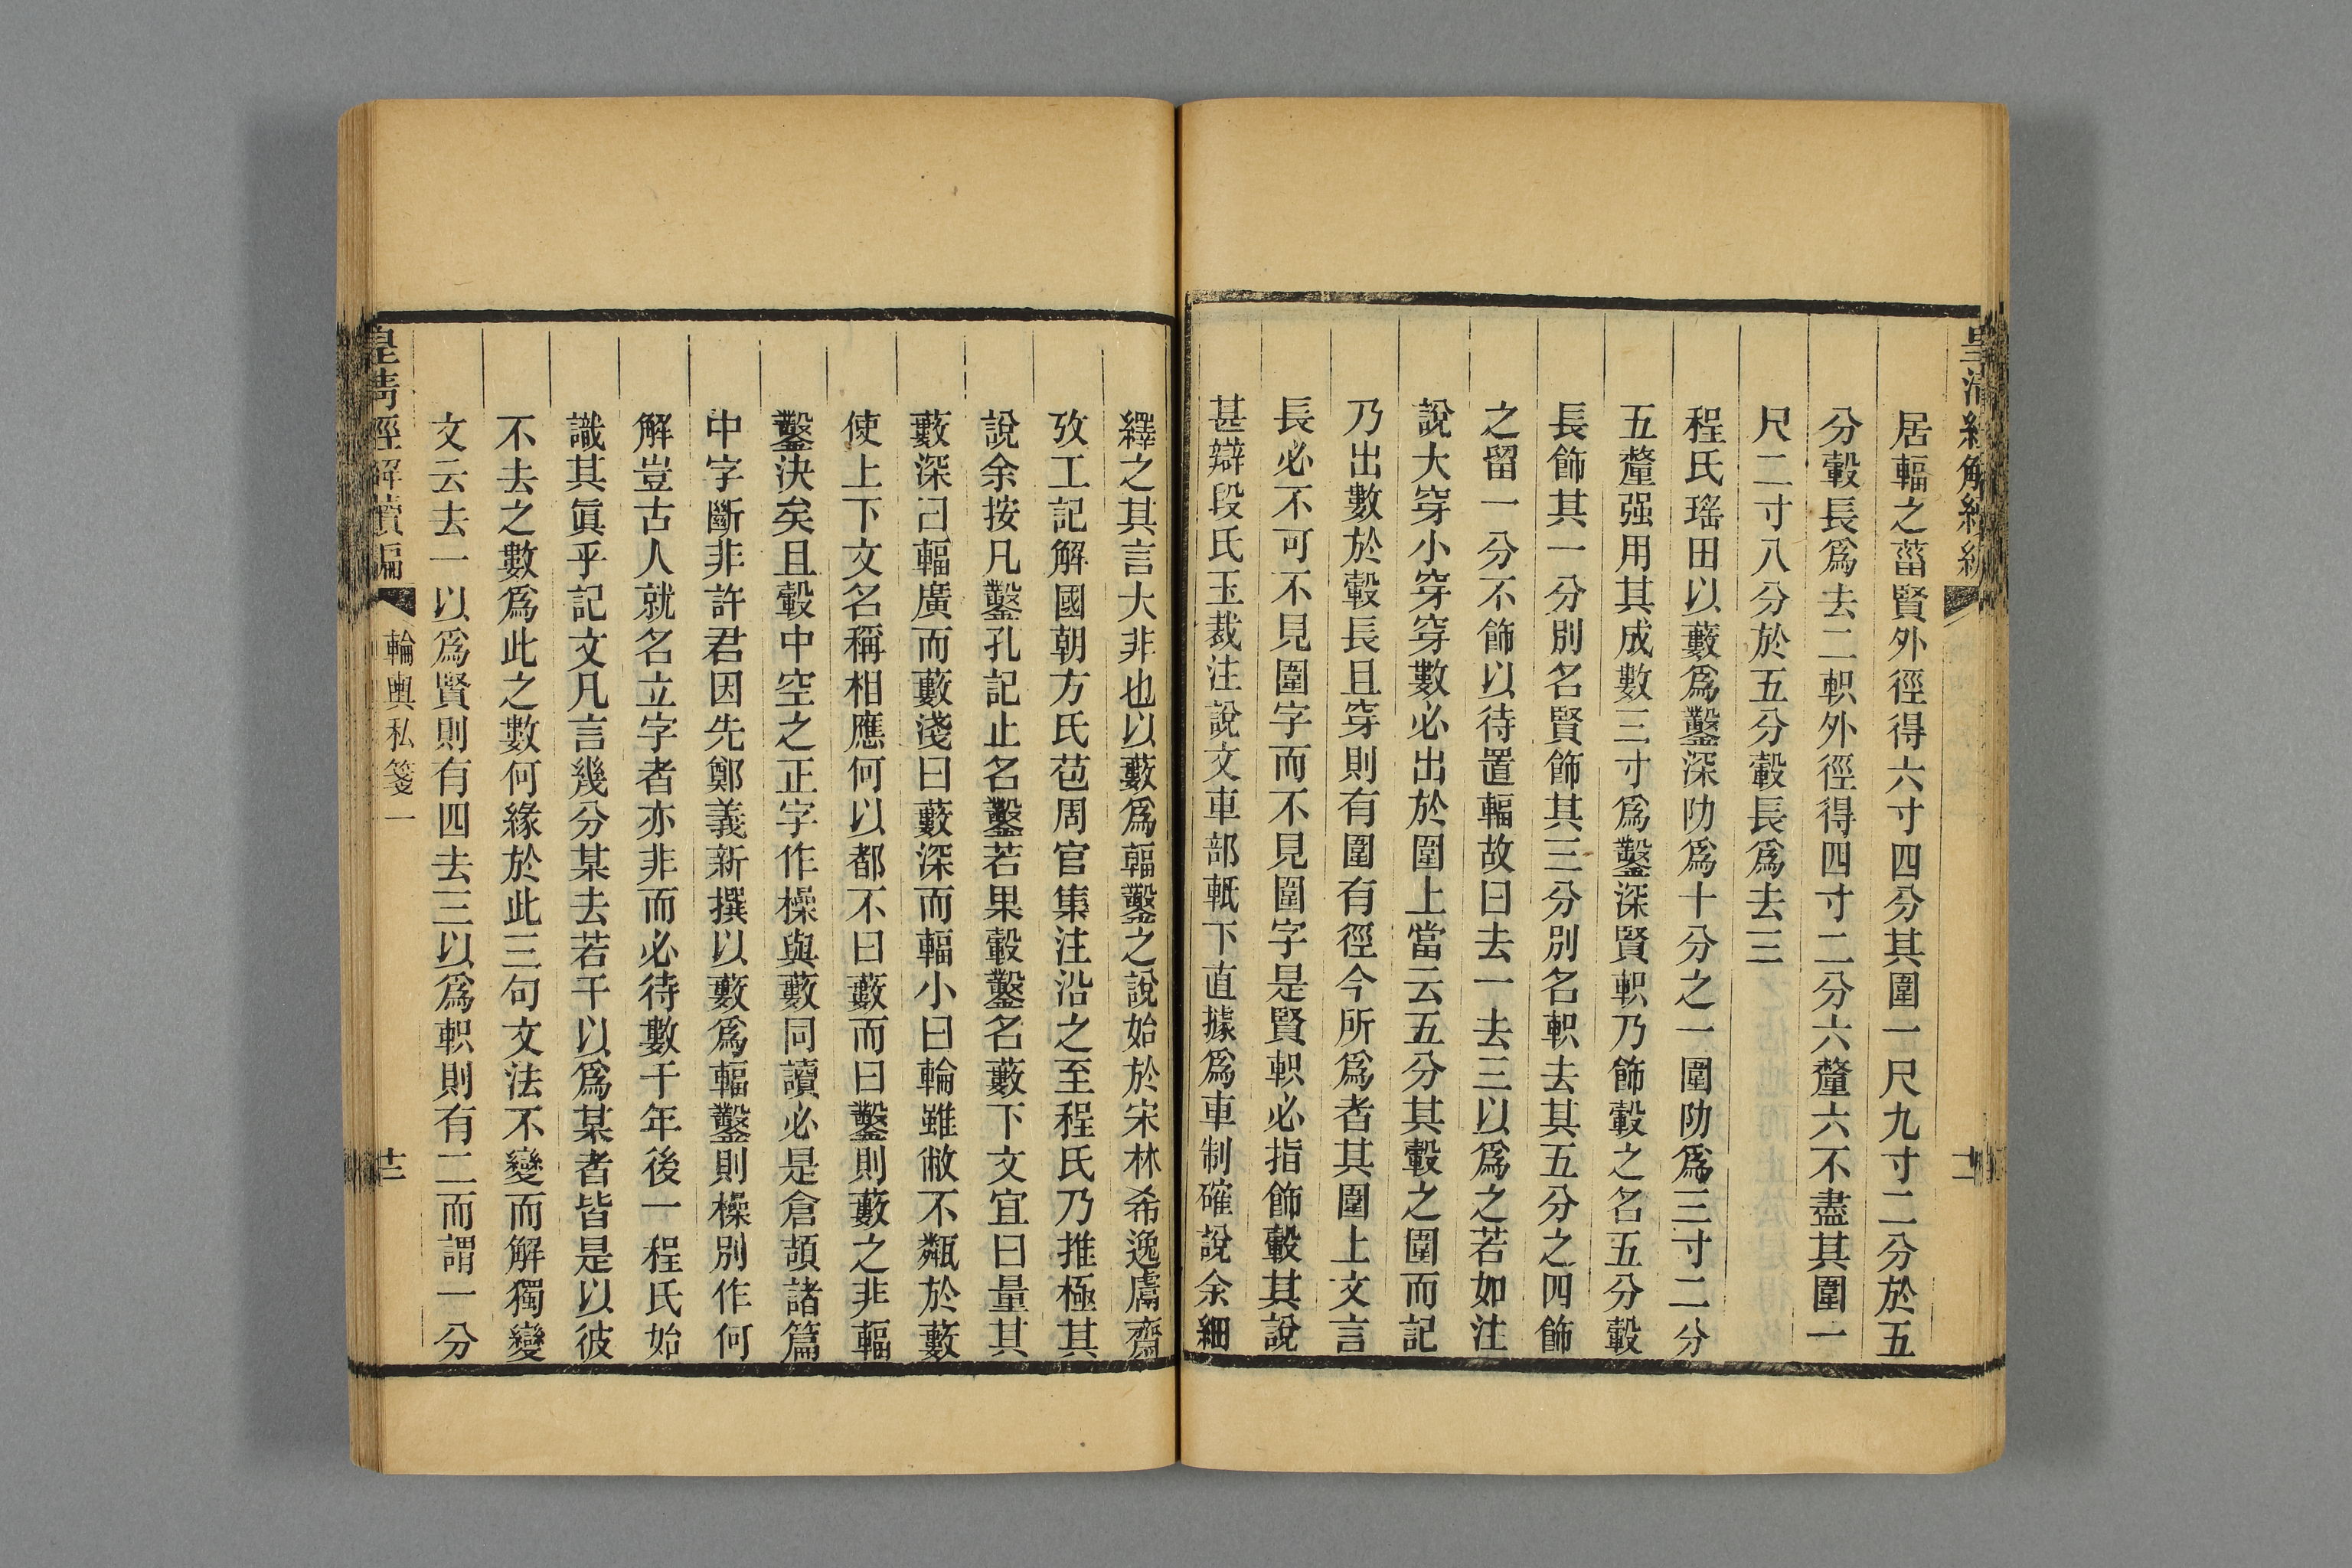 皇清經解續編
居輻之菑賢外徑得六寸四分其圍一尺九寸二分於五
分轂長爲去二軹外徑得四寸二分六釐六不盡其圍一
尺二寸八分於五分轂長爲去三
程氏瑤田以藪爲鑿深阞爲十分之一圍阞爲三寸二分
五釐强用其成數三寸爲鑿深賢軹乃飾轂之名五分轂
長飾其一分別名賢飾其三分別名軹去其五分之四飾
之留一分不飾以待置輻故曰去一去三以爲之若如注
說大穿小穿穿數必出於圍上當云五分其轂之圍而記
乃出數於轂長且穿則有圍有徑今所爲者其圍上文言
長必不可不見圍字而不見圍字是賢軹必指飾轂其說
甚辯段氏玉裁注說文車部軝下直據爲車制確說余細
繹之其言大非也以藪爲輻鑿之說始於宋林希逸鬳齋
攷工記解國朝方氏苞周官集注沿之至程氏乃推極其
說余按凡鑿孔記止名鑿若果轂鑿名藪下文宜曰量其
藪深己輻廣而藪淺曰藪深而輻小曰輪雖敝不甐於藪
使上下文名稱相應何以都不曰藪而曰鑿則藪之非輻
鑿決矣且轂中空之正字作橾與藪同讀必是倉頡諸篇
中字斷非許君因先鄭義新撰以藪爲輻鑿則橾別作何
解豈古人就名立字者亦非而必待數千年後一程氏始
識其眞乎記文凡言幾分某去若干以爲某者皆是以彼
不去之數爲此之數何緣於此三句文法不變而解獨變
文云去一以爲賢則有四去三以爲軹則有二而謂一分
皇清經解續編
輪輿私箋一